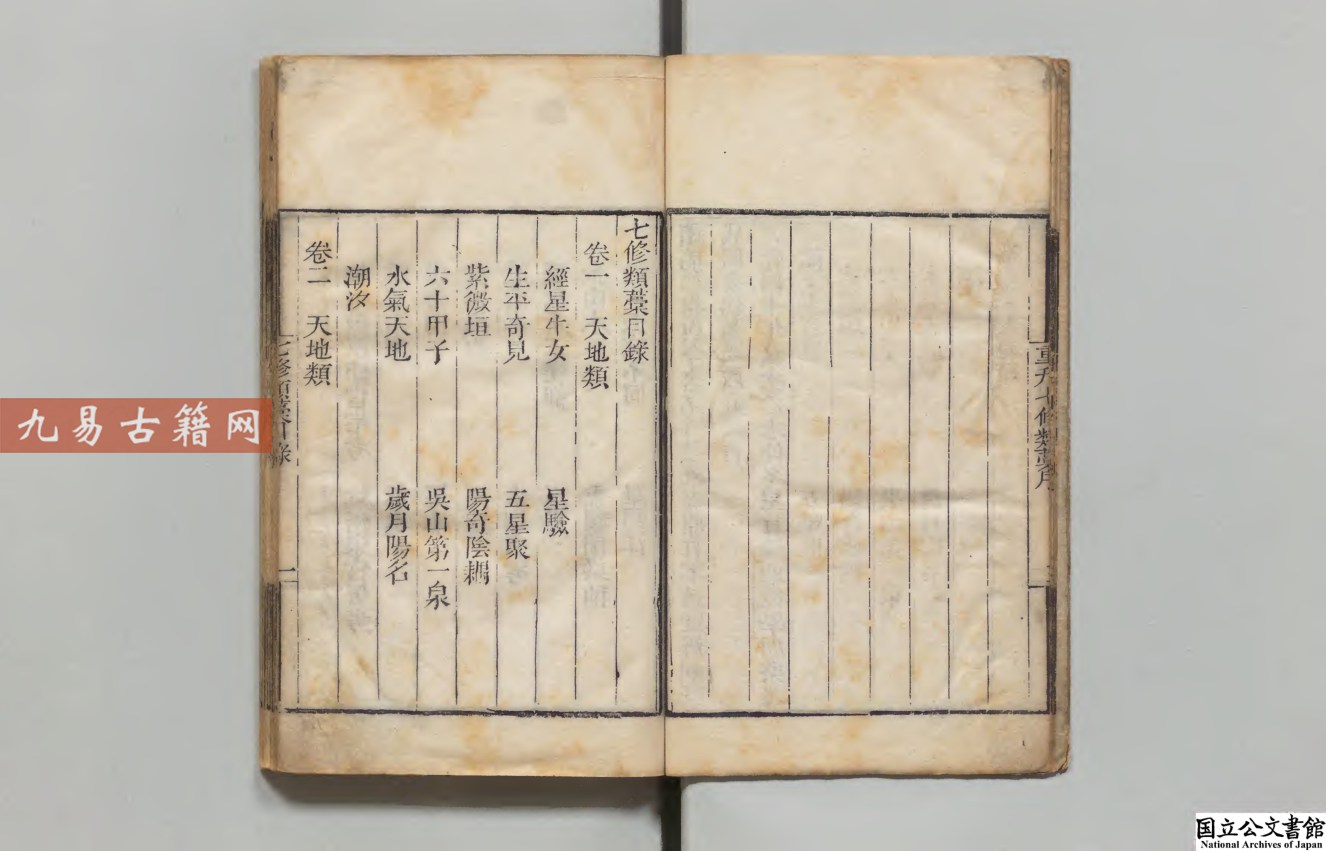 七修類藁目錄
卷一 天地類
經星牛女 星驗
生平奇見 五星聚
紫微垣 陽奇陰耦
六十甲子 吳山第一泉
水氣天地 歲月陽名
潮汐
卷二 天地類
七修類藁目錄
一
九易古籍网
国立公文書館
National Archives of Japan